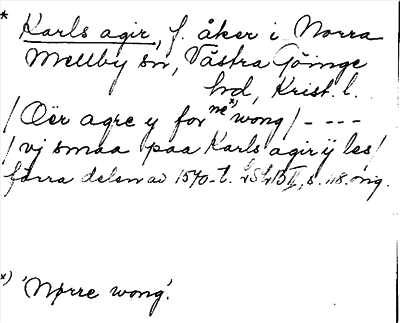 * Karls agir, f. åker i Norra
Mellby sn, Västra Göinge
hd, Krist. l.
/ Oër agre y for ne x) wong / - - - -
/ vj smaa paa Karls agir ij les /
förra delen av 1570-t. LSLB II, s. 118. mg.
x) 'Nørre wong'.